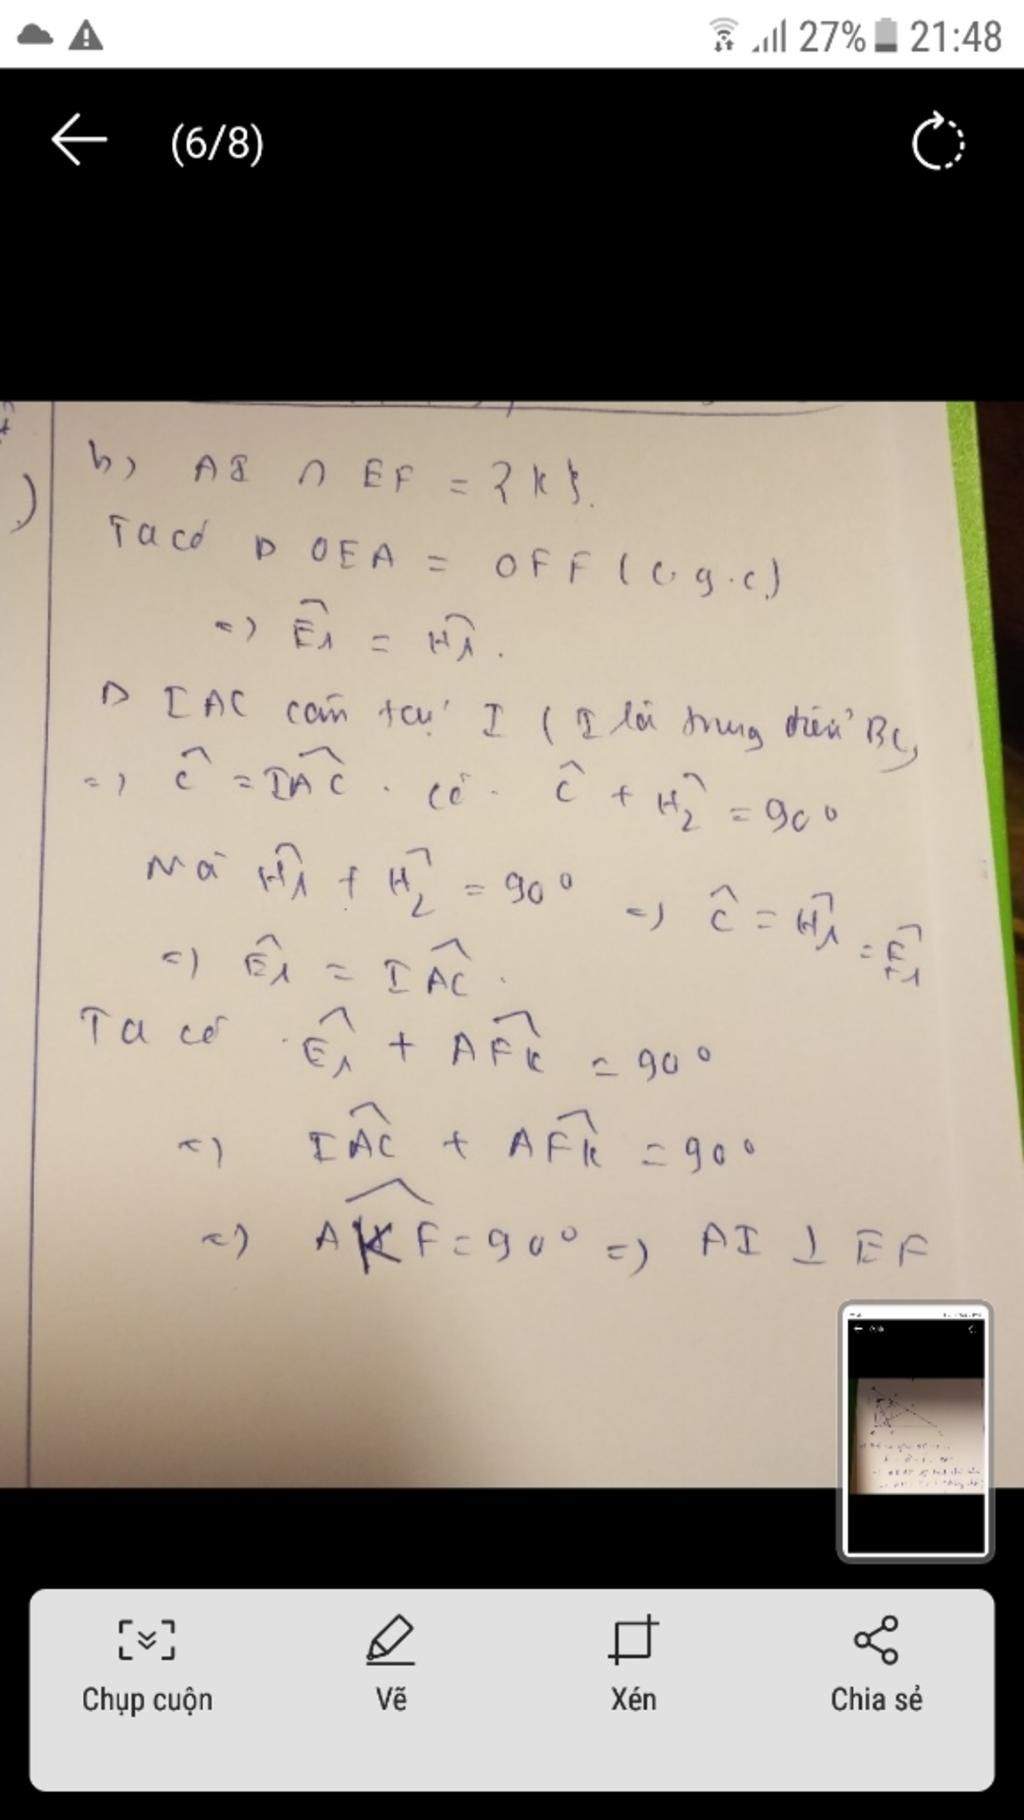 27% 21:48
(6/8)
b) AI ∩ EF = {K}.
Ta có Δ OEA = OFF (c.g.c)
=> Ê1 = Ĥ1.
Δ IAC cân tại I (I là trung điểm BC)
=> Ĉ = IÂC. Có. Ĉ + Ĥ2 = 90°
Mà Ĥ1 + Ĥ2 = 90° => Ĉ = Ĥ1 = Ê1
=> Ê1 = IÂC.
Ta có Ê1 + AF̂K = 90°
=> IÂC + AF̂K = 90°
=> AK̂F = 90° => AI ⊥ EF
Chụp cuộn
Vẽ
Xén
Chia sẻ